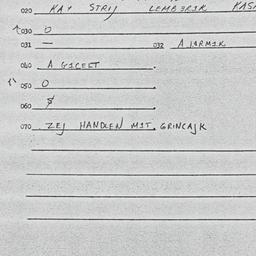 020 KAY STRIJ LEMBERIK KASI
030 0
031 — 032 A JARMIK
040 A GICELT.
050 0
060 $
070 ZEJ HANDLEN MIT. GRINCAJK